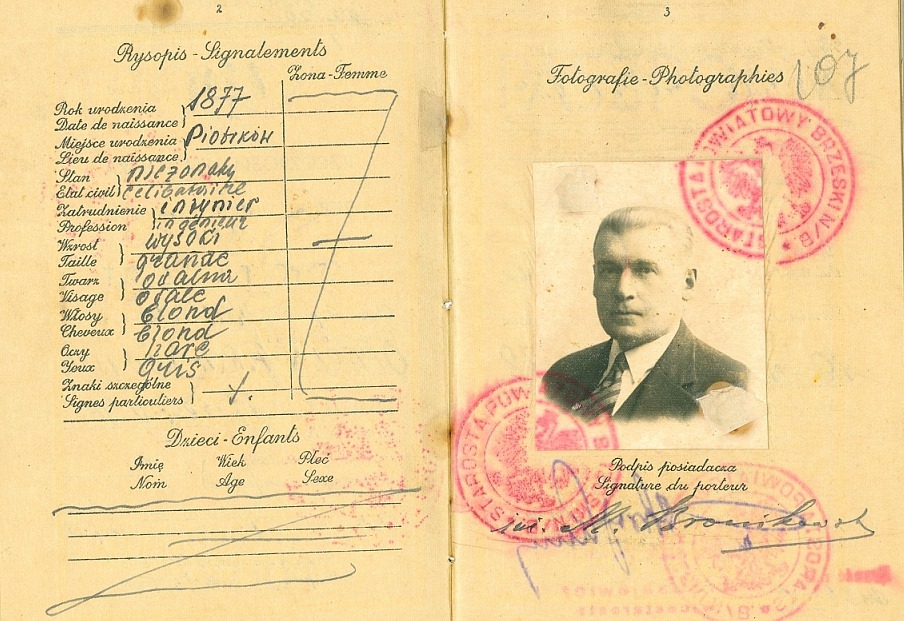 2
Rysopis - Signalements
Żona - Femme
Rok urodzenia 1877
Date de naissance
Miejsce urodzenia Piotrków
Lieu de naissance
Stan
Etat civil
Zatrudnienie inżynier
Profession ingenieur
Wzrost wysoki
Taille grande
Twarz
Visage ovale
Włosy blond
Cheveux blond
Oczy
Yeux gris
Znaki szczególne
Signes particuliers
Dzieci - Enfants
Imię Wiek Płeć
Nom Age Sexe
3
Fotografie - Photographies
107
STAROSTA POWIATOWY BRZESKI N/B
Podpis posiadacza
Signature du porteur
inż. M. Bronikowski